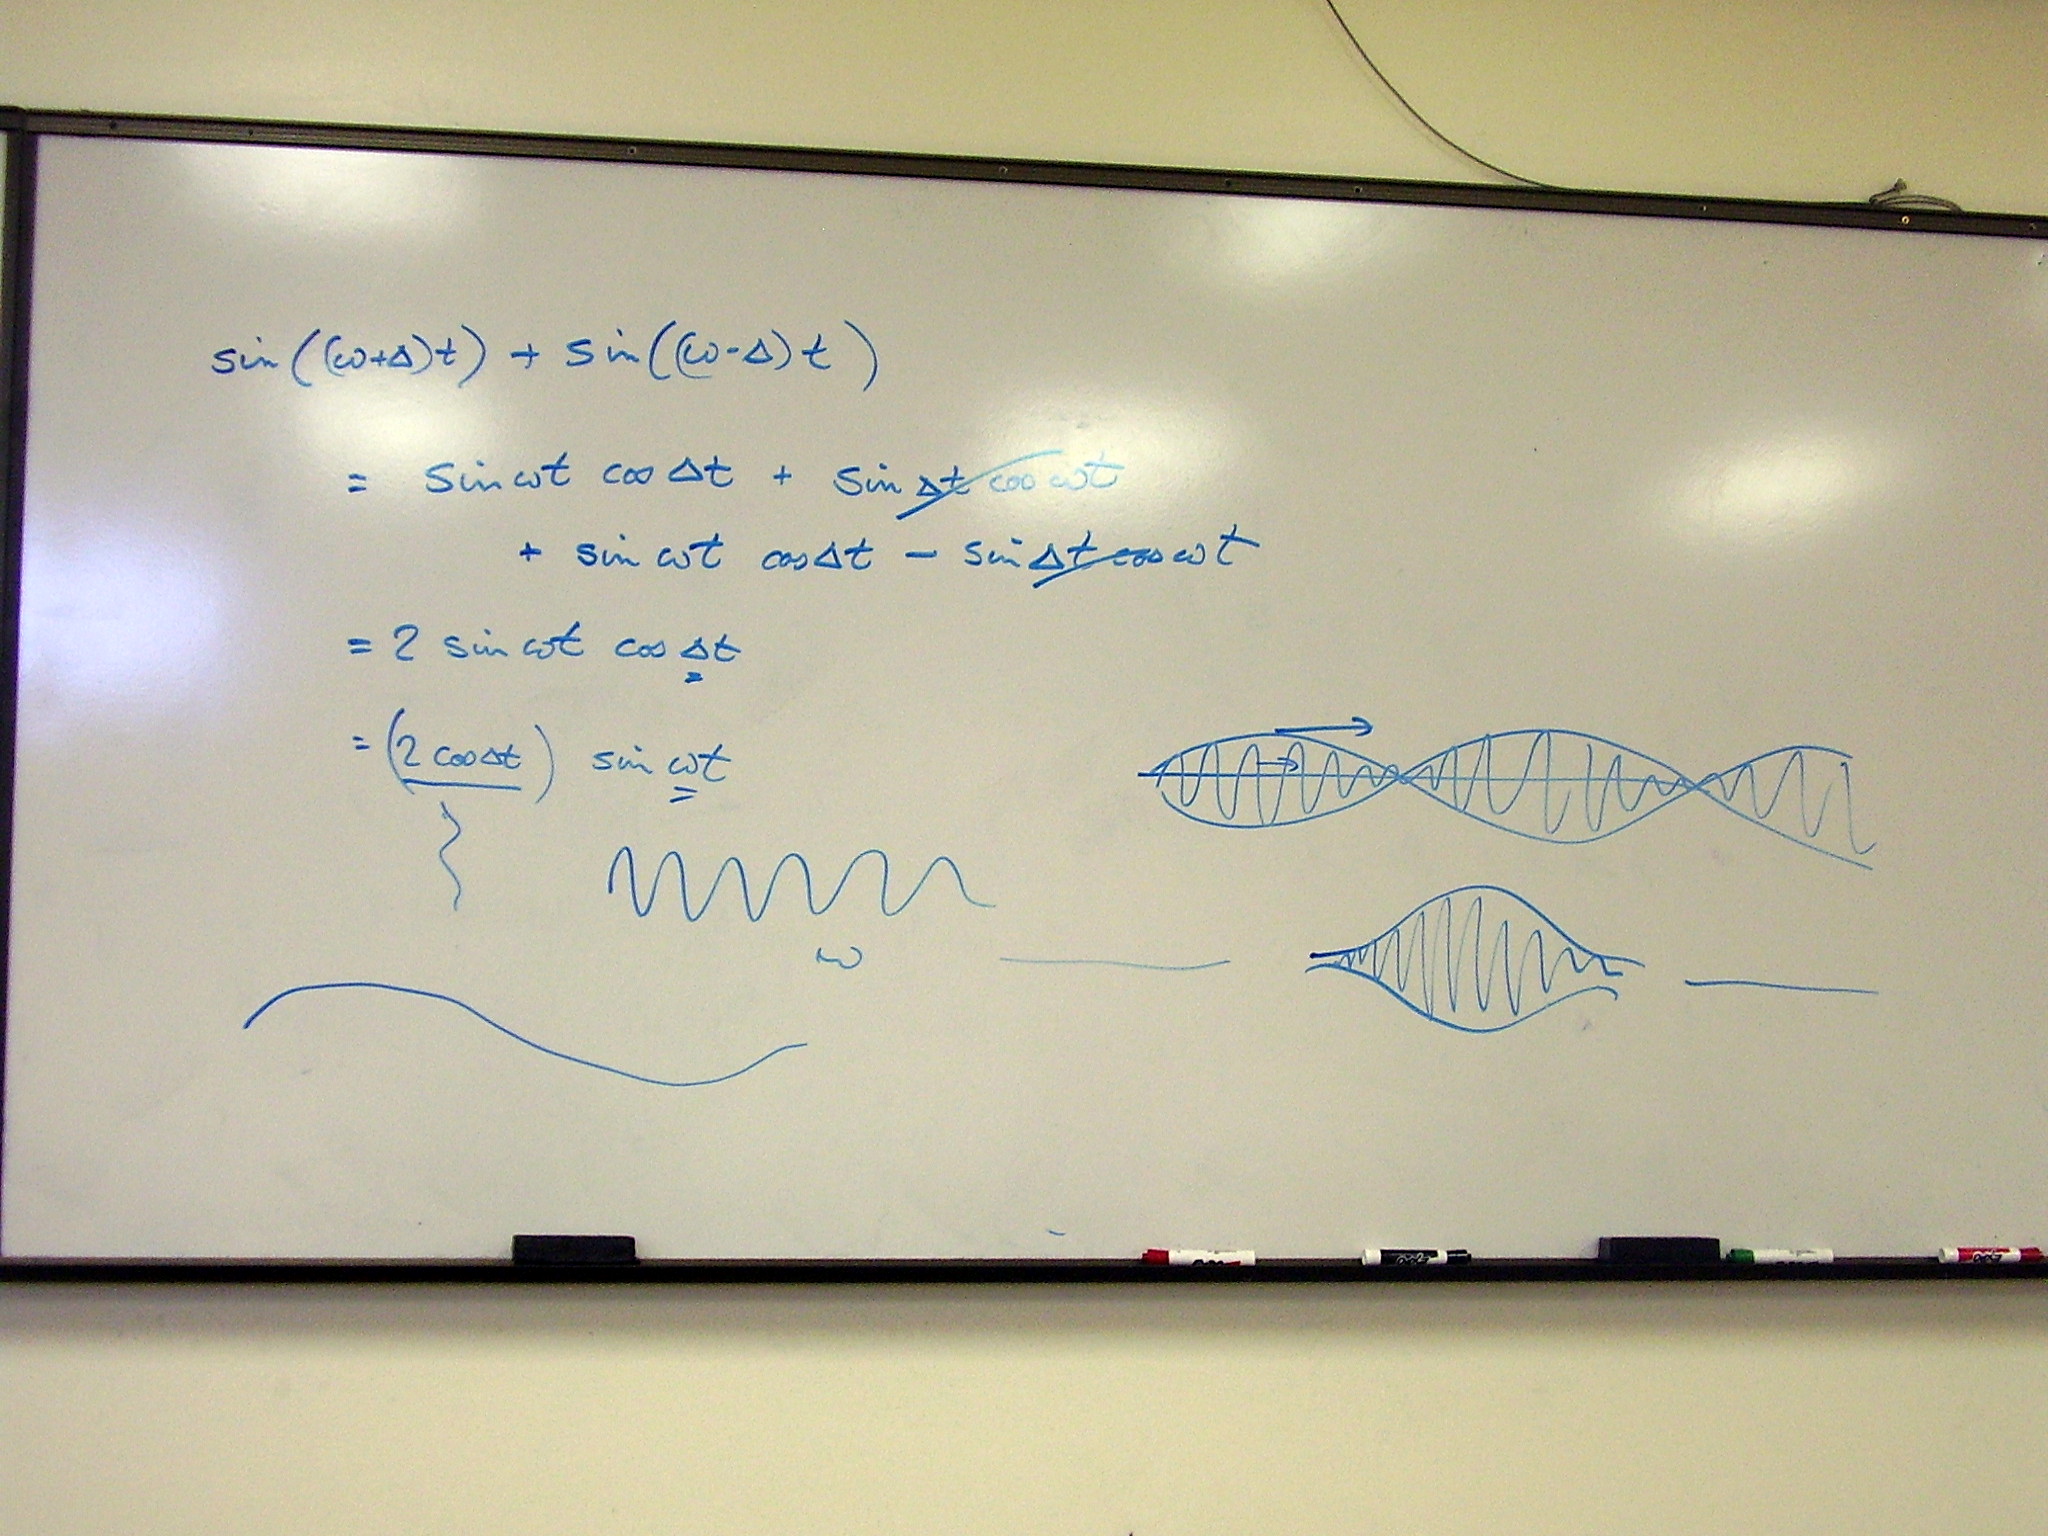 sin((ω+Δ)t) + sin((ω-Δ)t)
= sin ωt cos Δt + sin Δt cos ωt
+ sin ωt cos Δt - sin Δt cos ωt
= 2 sin ωt cos Δt
= (2 cos Δt) sin ωt
ω